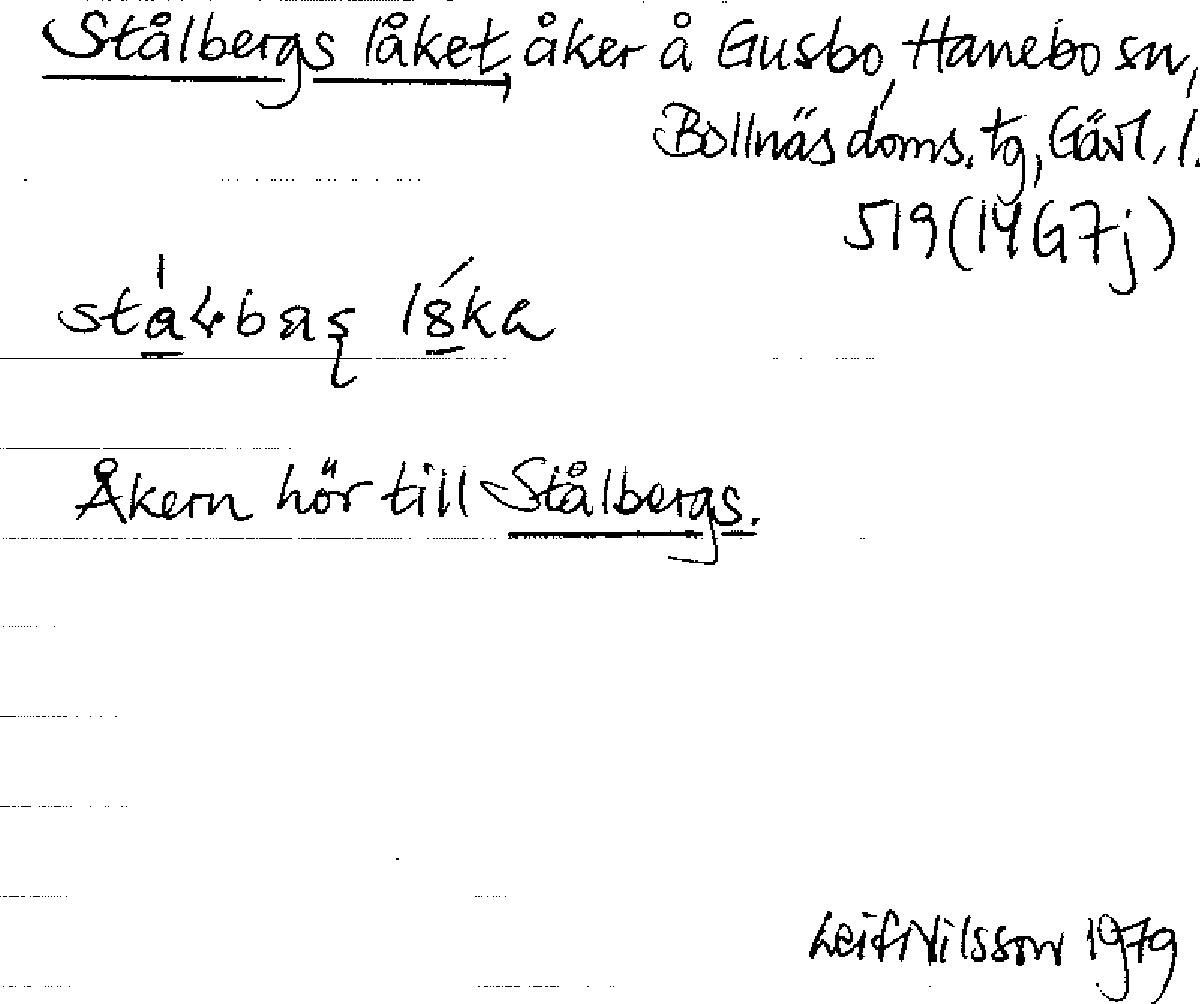 Stålbergs låket, åker å Gusbo, Hanebo sn,
Bollnäs doms. tg, Gävl. l.
519 (14G7j)
Åkern hör till Stålbergs.
Leif Nilsson 1979